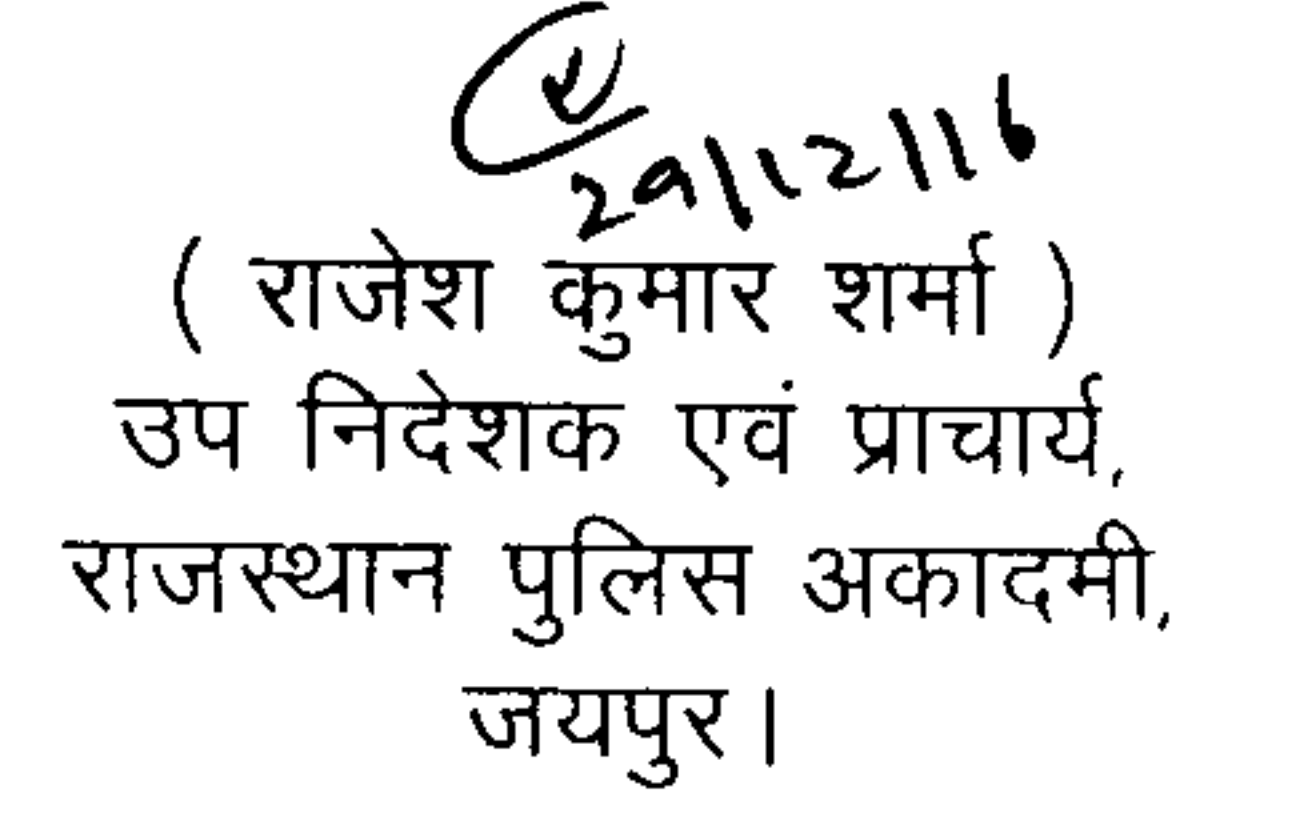 29/12/16
( राजेश कुमार शर्मा )
उप निदेशक एवं प्राचार्य,
राजस्थान पुलिस अकादमी,
जयपुर।